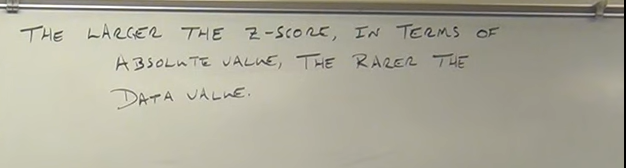 THE LARGER THE Z-SCORE, IN TERMS OF
ABSOLUTE VALUE, THE RARER THE
DATA VALUE.